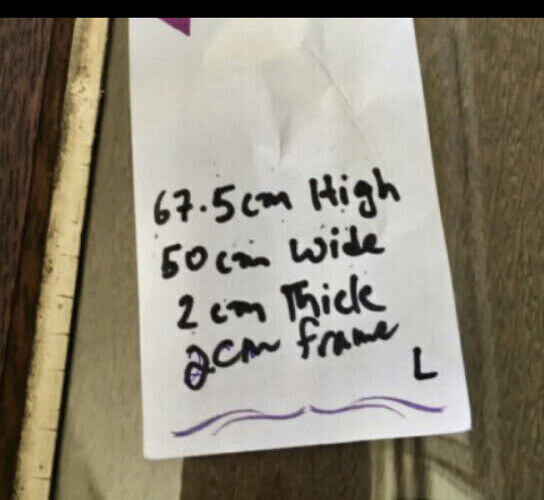 67.5cm High
50cm Wide
2cm Thick
2cm frame
L